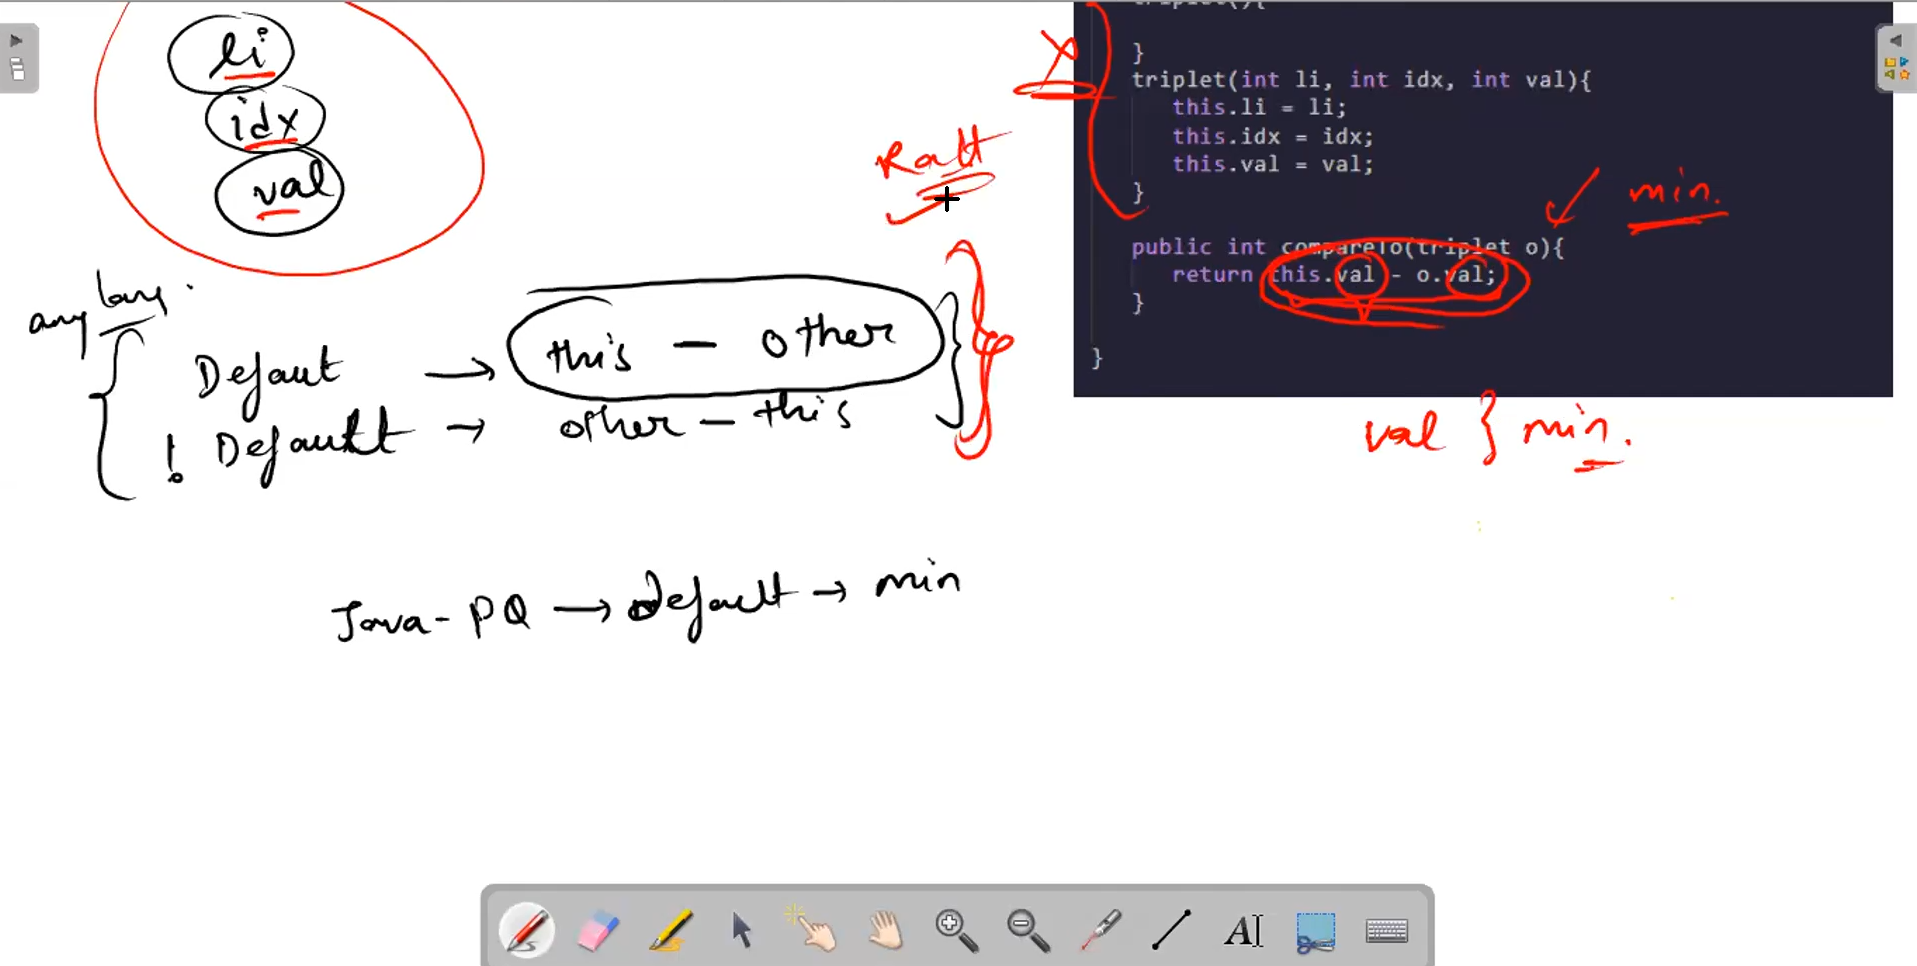 li
idx
val
Ratt
any lang.
Defaut → this - other
! Default → other - this
Java - PQ → default → min
triplet(){
}
triplet(int li, int idx, int val){
this.li = li;
this.idx = idx;
this.val = val;
}
min.
public int compareTo(triplet o){
return this.val - o.val;
}
}
val } min.
AI